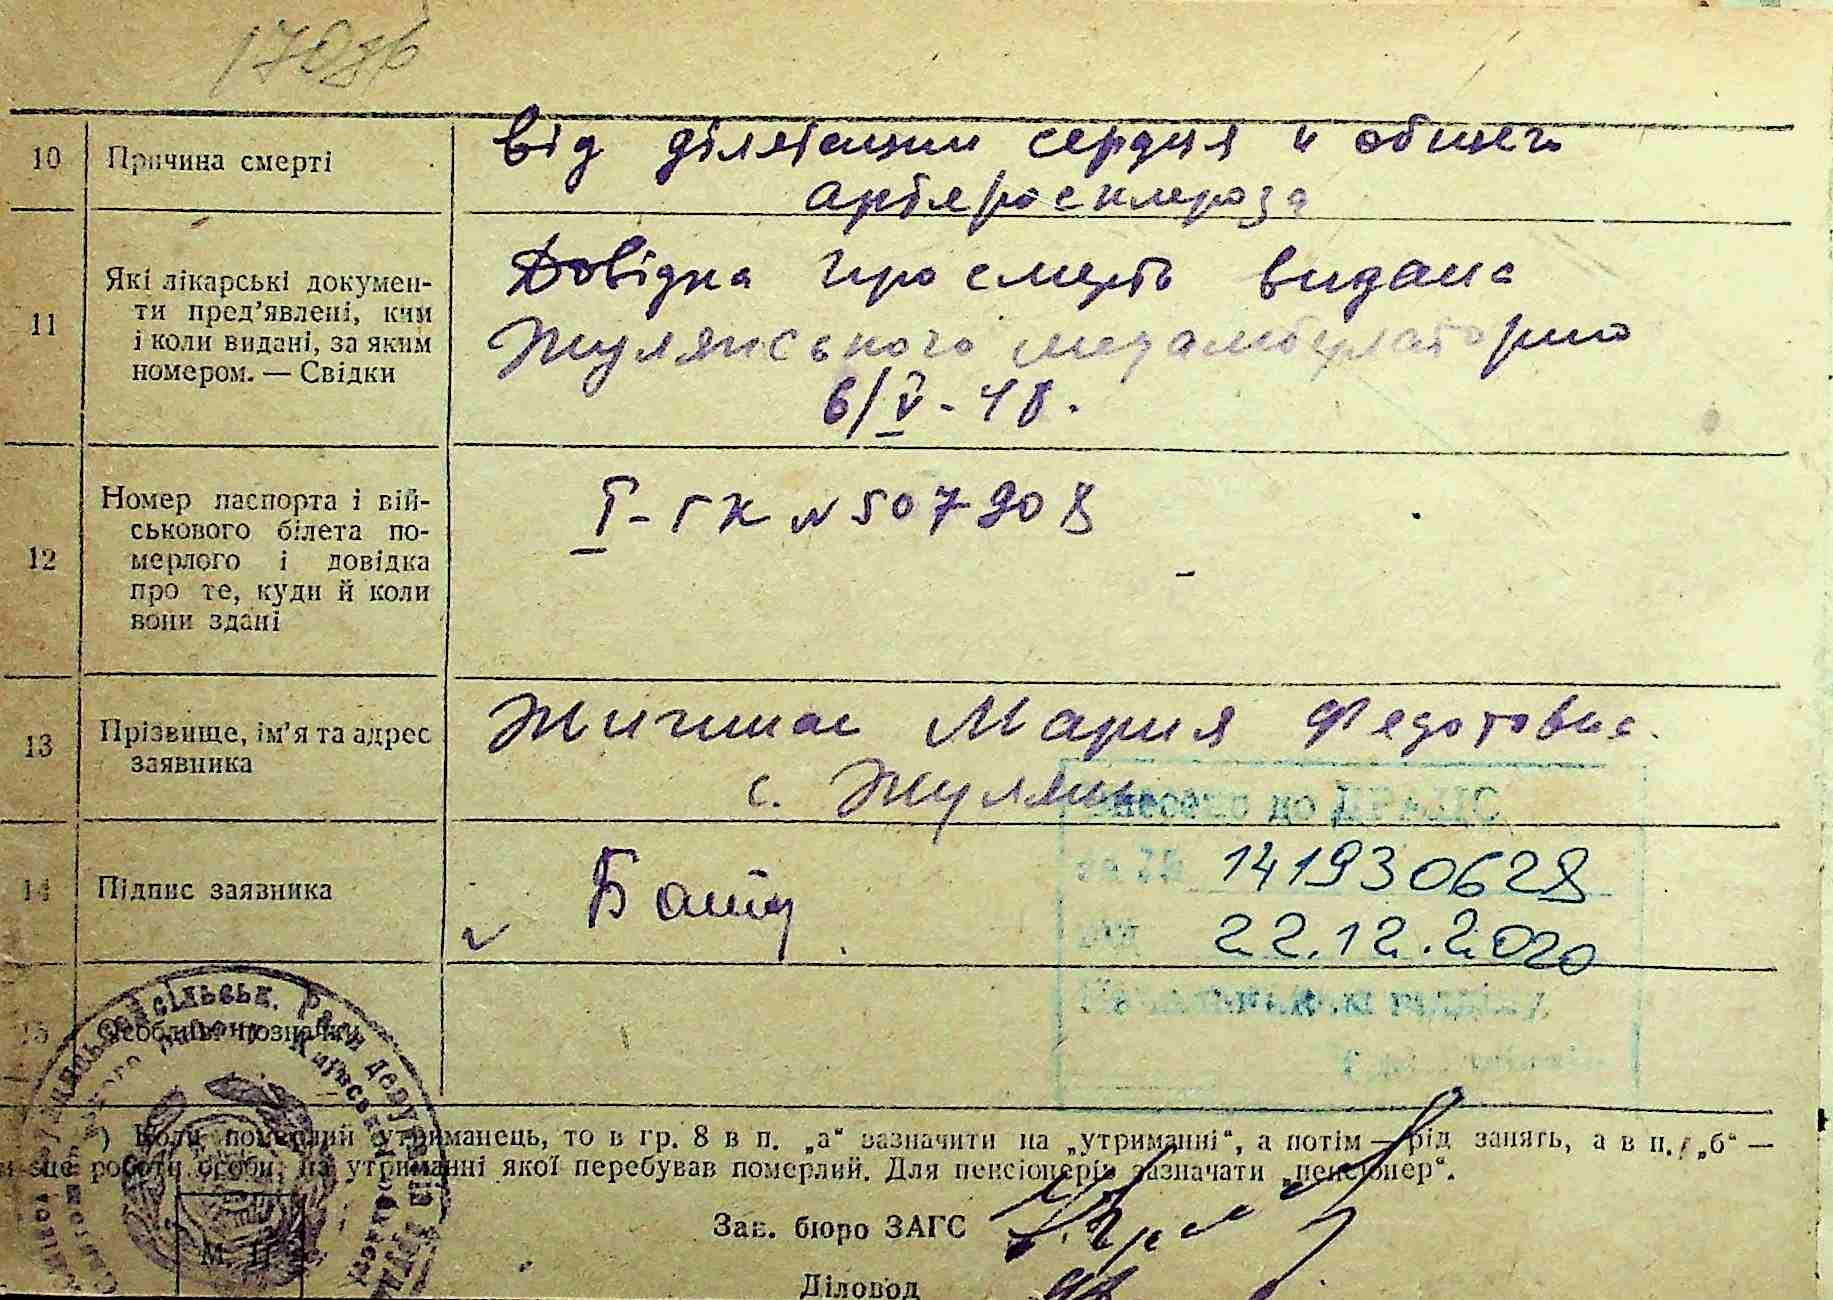 10 Причина смерті
від ділятации сердця и общего
артеросклероза
11 Які лікарські докумен-
ти пред’явлені, ким
і коли видані, за яким
номером. — Свідки
Довідка про смерть видана
Жулянського медамбулаторию
6/V - 48.
12 Номер паспорта і вій-
ськового білета по-
мерлого і довідка
про те, куди й коли
вони здані
I - ГК № 507908
13 Прізвище, ім’я та адрес
заявника
Мария Федотовна.
с. Жуляны
14 Підпис заявника
внесено до ДРАЦС
за № 141930628
від 22.12.2020
15 Особливі позначки
*) Коли померлий утриманець, то в гр. 8 в п. „а“ зазначити на „утриманні“, а потім — рід занять, а в п. „б“ —
місце роботи особи, на утриманні якої перебував померлий. Для пенсіонерів зазначати „пенсіонер“.
Зав. бюро ЗАГС
М. П.
Діловод